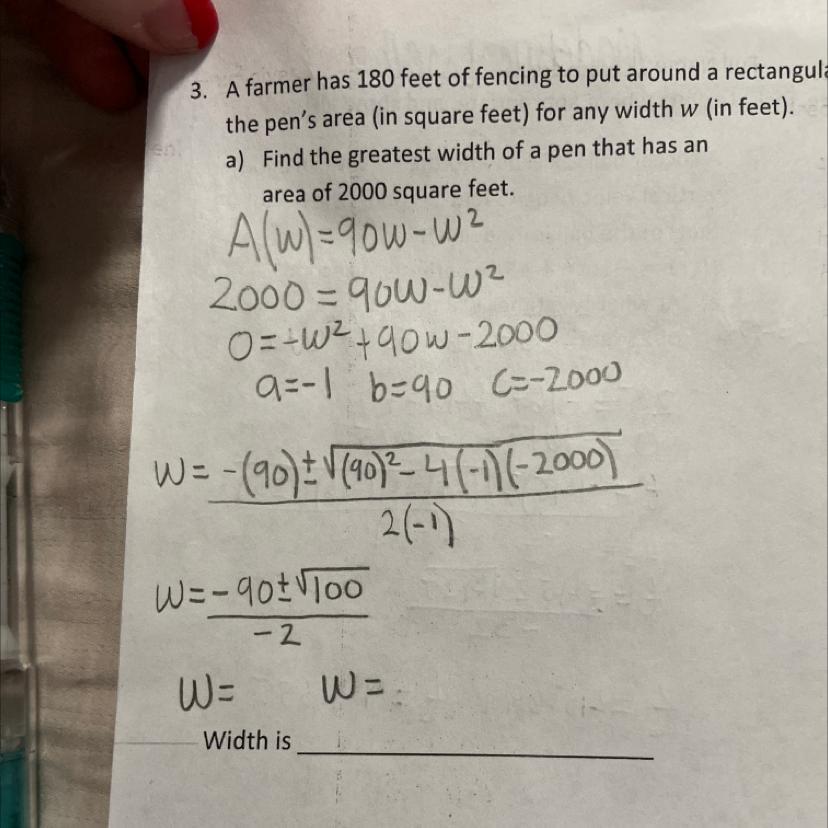 3. A farmer has 180 feet of fencing to put around a
the pen's area (in square feet) for any width w (in feet).
a) Find the greatest width of a pen that has an
area of 2000 square feet.
A(w)=90w-w²
2000=90w-w²
0=-w²+90w-2000
a=-1 b=90 c=-2000
w= -(90)±√(90)²-4(-1)(-2000)
2(-1)
w=-90±√100
-2
w= w=
Width is